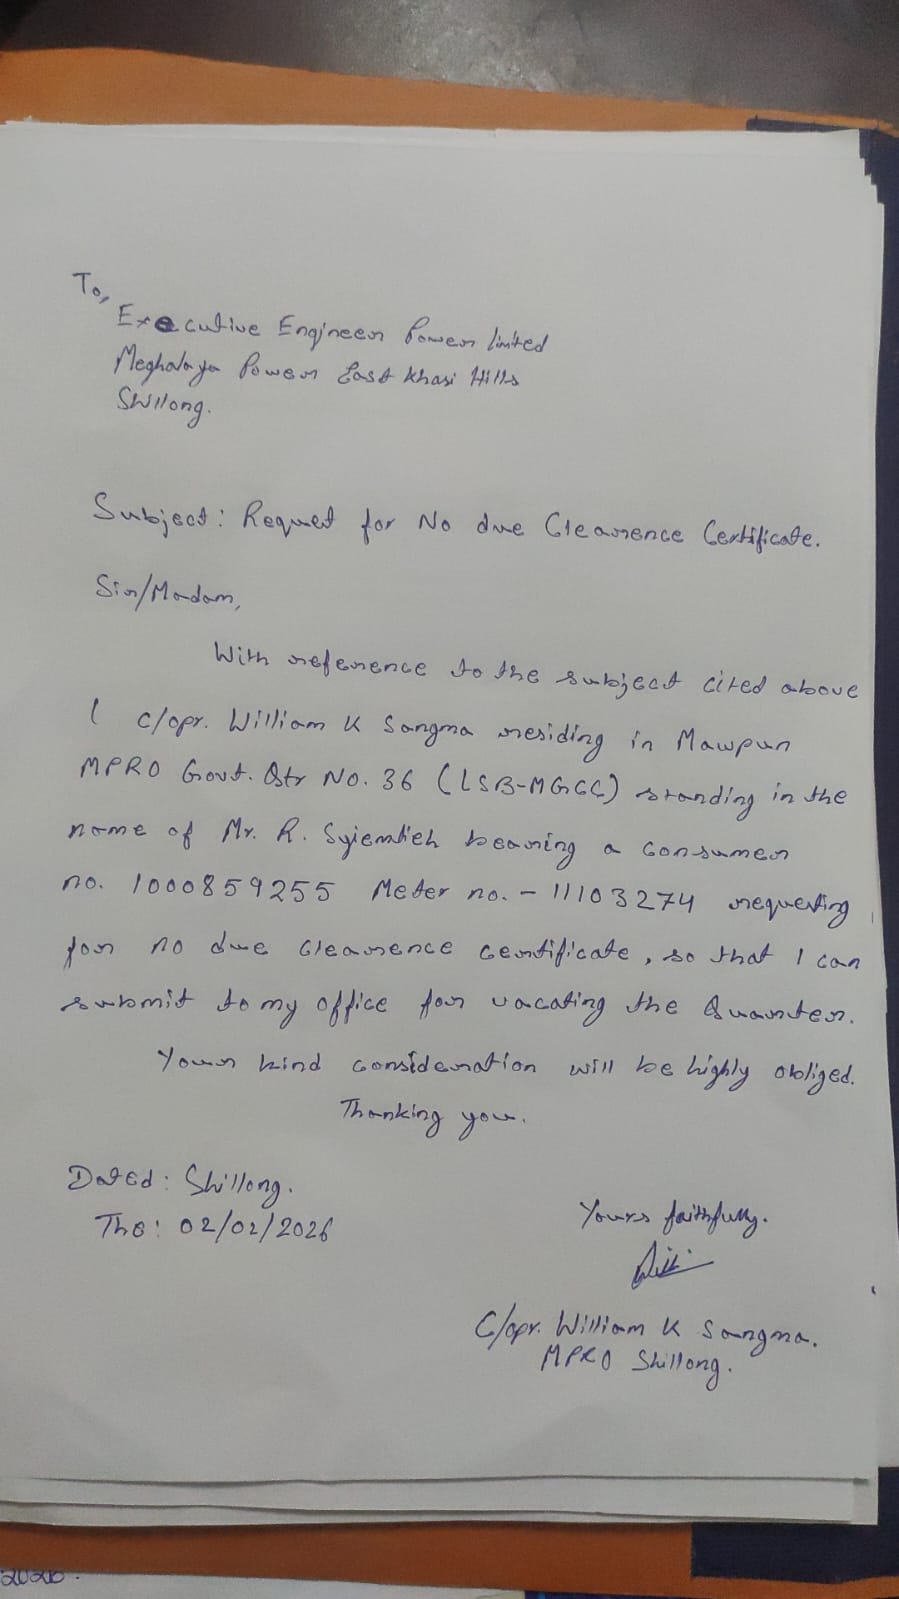 To,
Executive Engineer Power limited
Meghalaya Power East Khasi Hills
Shillong.
Subject: Request for No due Clearence Certificate.
Sir/Madam,
With reference to the subject cited above
I c/opr. William K Sangma residing in Mawpun
MPRO Govt. Qtr No. 36 (LSB-MGCC) standing in the
name of Mr. R. Syiemlieh bearing a consumer
no. 1000859255 Meter no. - 11103274 requesting
for no due clearence certificate, so that I can
submit to my office for vacating the Quarter.
Your kind consideration will be highly obliged.
Thanking you.
Dated: Shillong.
The: 02/02/2026
Yours faithfully.
C/opr. William K Sangma.
MPRO Shillong.